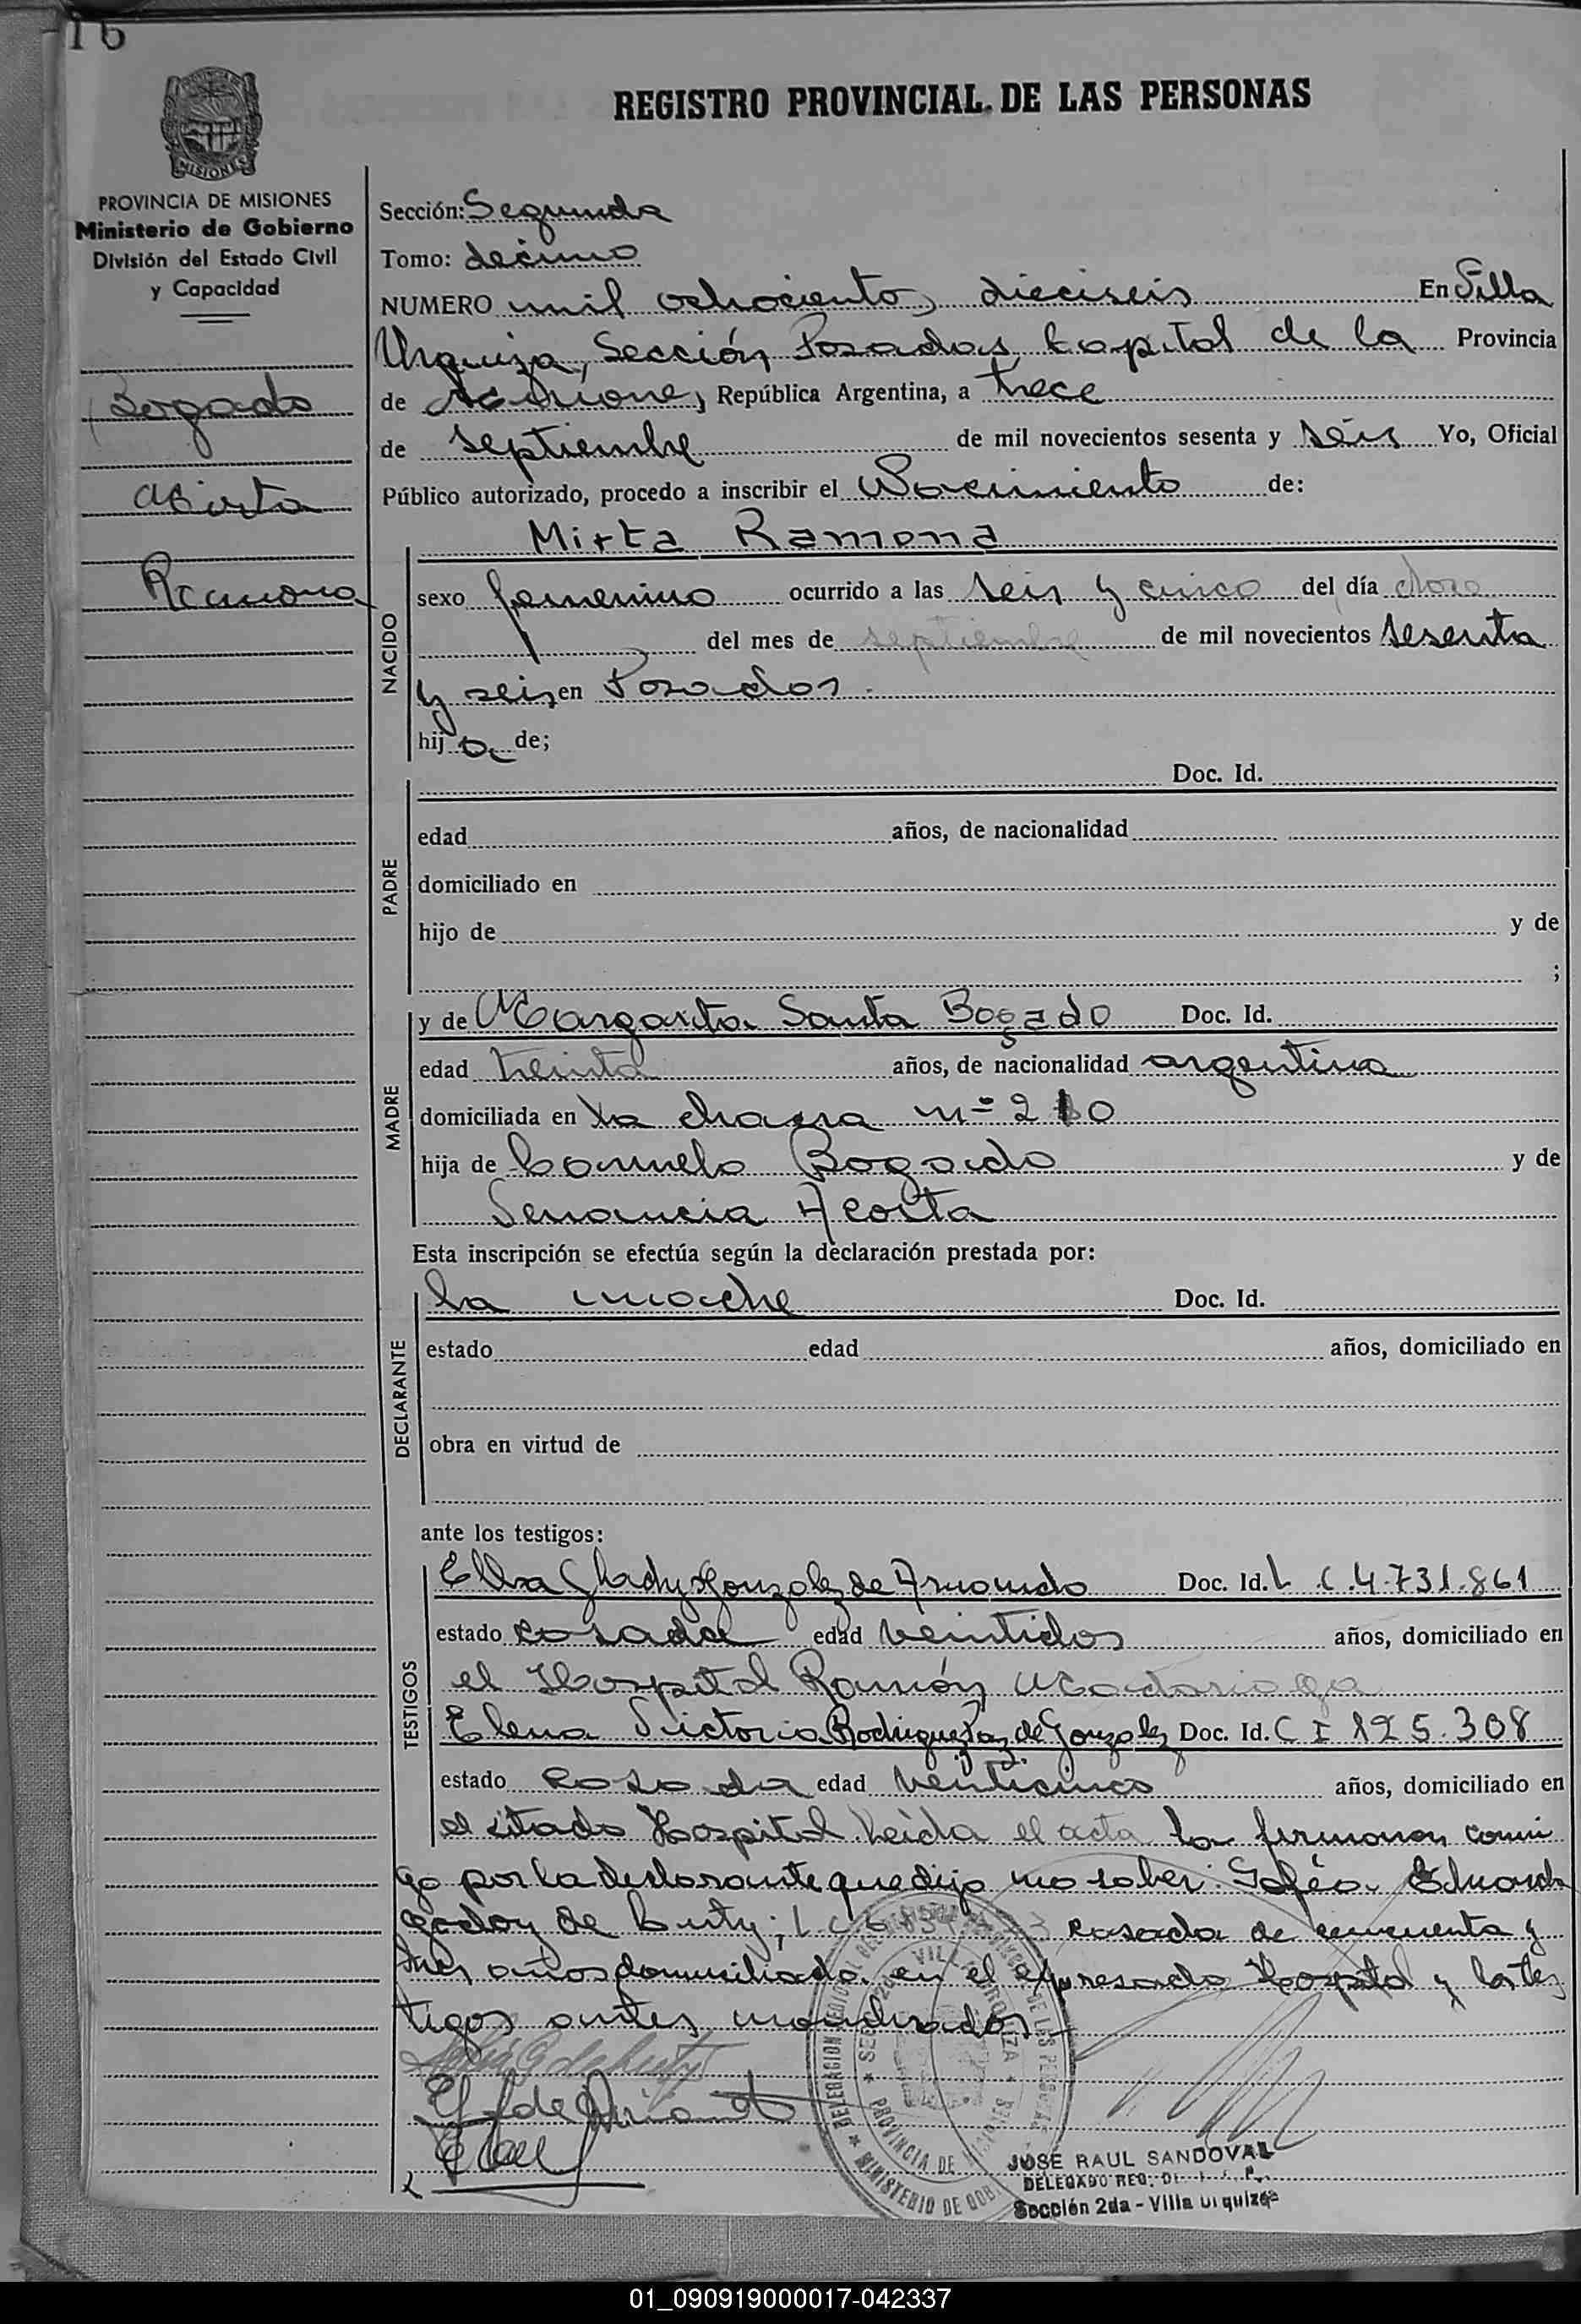 16
REGISTRO PROVINCIAL DE LAS PERSONAS
MISIONES
PROVINCIA DE MISIONES
Ministerio de Gobierno
División del Estado Civil
y Capacidad
Bogado
Mirta
Ramona
Sección: Segunda
Tomo: decimo
NUMERO mil ochocientos dieciseis En Villa
Urquiza, Sección Posadas, Capital de la Provincia
de Misiones, República Argentina, a trece
de septiembre de mil novecientos sesenta y seis Yo, Oficial
Público autorizado, procedo a inscribir el Nacimiento de:
NACIDO
Mirta Ramona
sexo femenino ocurrido a las seis y cinco del día doce
del mes de septiembre de mil novecientos sesenta
y seis en Posadas.
hij a de;
PADRE
Doc. Id.
edad años, de nacionalidad
domiciliado en
hijo de y de
;
MADRE
y de Margarita Santa Bogado Doc. Id.
edad treinta años, de nacionalidad argentina
domiciliada en la chacra nº 210
hija de Bogado y de
Venancia Acosta
Esta inscripción se efectúa según la declaración prestada por:
DECLARANTE
la madre Doc. Id.
estado edad años, domiciliado en
obra en virtud de
ante los testigos:
TESTIGOS
Elba Gladys Gonzalez de Doc. Id. L C 4.731.861
estado casada edad veintidos años, domiciliado en
el Hospital Ramón Madariaga
Elena Victoria Rodriguez Paz de Gonzalez Doc. Id. C I 125.308
estado casada edad veinticinco años, domiciliado en
el citado Hospital. Leida el acta la firmaron conmi
go por la declarante que dijo no saber
Godoy de L C casada de cincuenta y
tres años domiciliada en el expresado Hospital y los tes
tigos antes nombrados.-
DELEGACION
SEC. 2da. VILLA URQUIZA
PROVINCIA DE MISIONES
MINISTERIO DE GOB
JOSE RAUL SANDOVAL
DELEGADO REG.
Sección 2da - Villa Urquiza
01_090919000017-042337